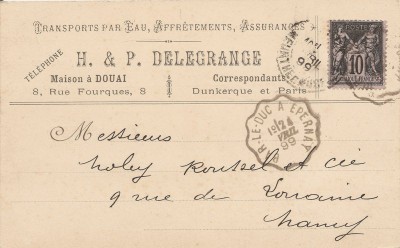 TRANSPORTS PAR EAU, AFFRÈTEMENTS, ASSURANCES
TÉLÉPHONE
H. & P. DELEGRANGE
Maison à DOUAI
8, Rue Fourques, 8
Correspondants
Dunkerque et Paris
10
BAR-LE-DUC A EPERNAY
99
Messieurs
Noley Roussel et cie
9 rue de Lorraine
Nancy